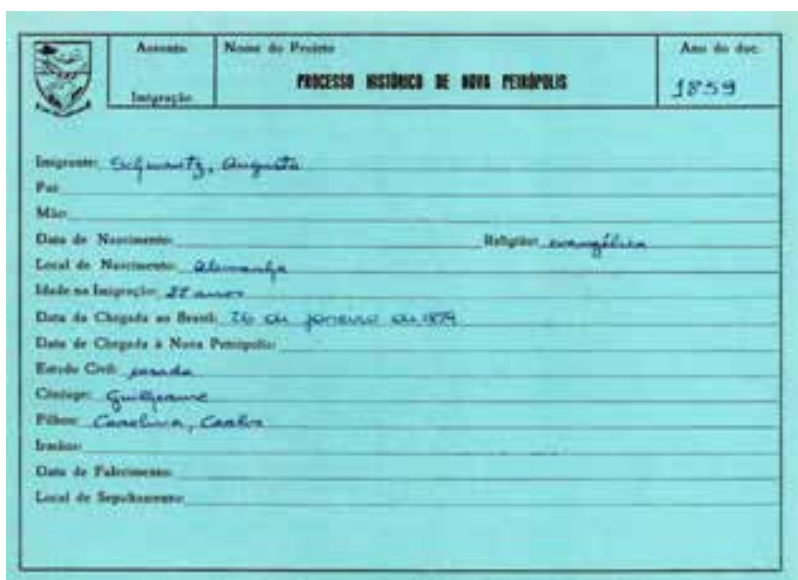 Assunto
Nome do Projeto
Ano do doc.
Imigração
PROCESSO HISTÓRICO DE NOVA PETRÓPOLIS
1859
Imigrante: Schwartz, Augusta
Pai
Mãe
Data de Nascimento: Religião: evangélica
Local de Nascimento: Alemanha
Idade na Imigração: anos
Data da Chegada ao Brasil: 26 de janeiro de
Data de Chegada à Nova Petrópolis:
Estado Civil: casada
Cônjuge: Guilherme
Filhos: Carolina, Carlos
Irmãos:
Data de Falecimento:
Local de Sepultamento: